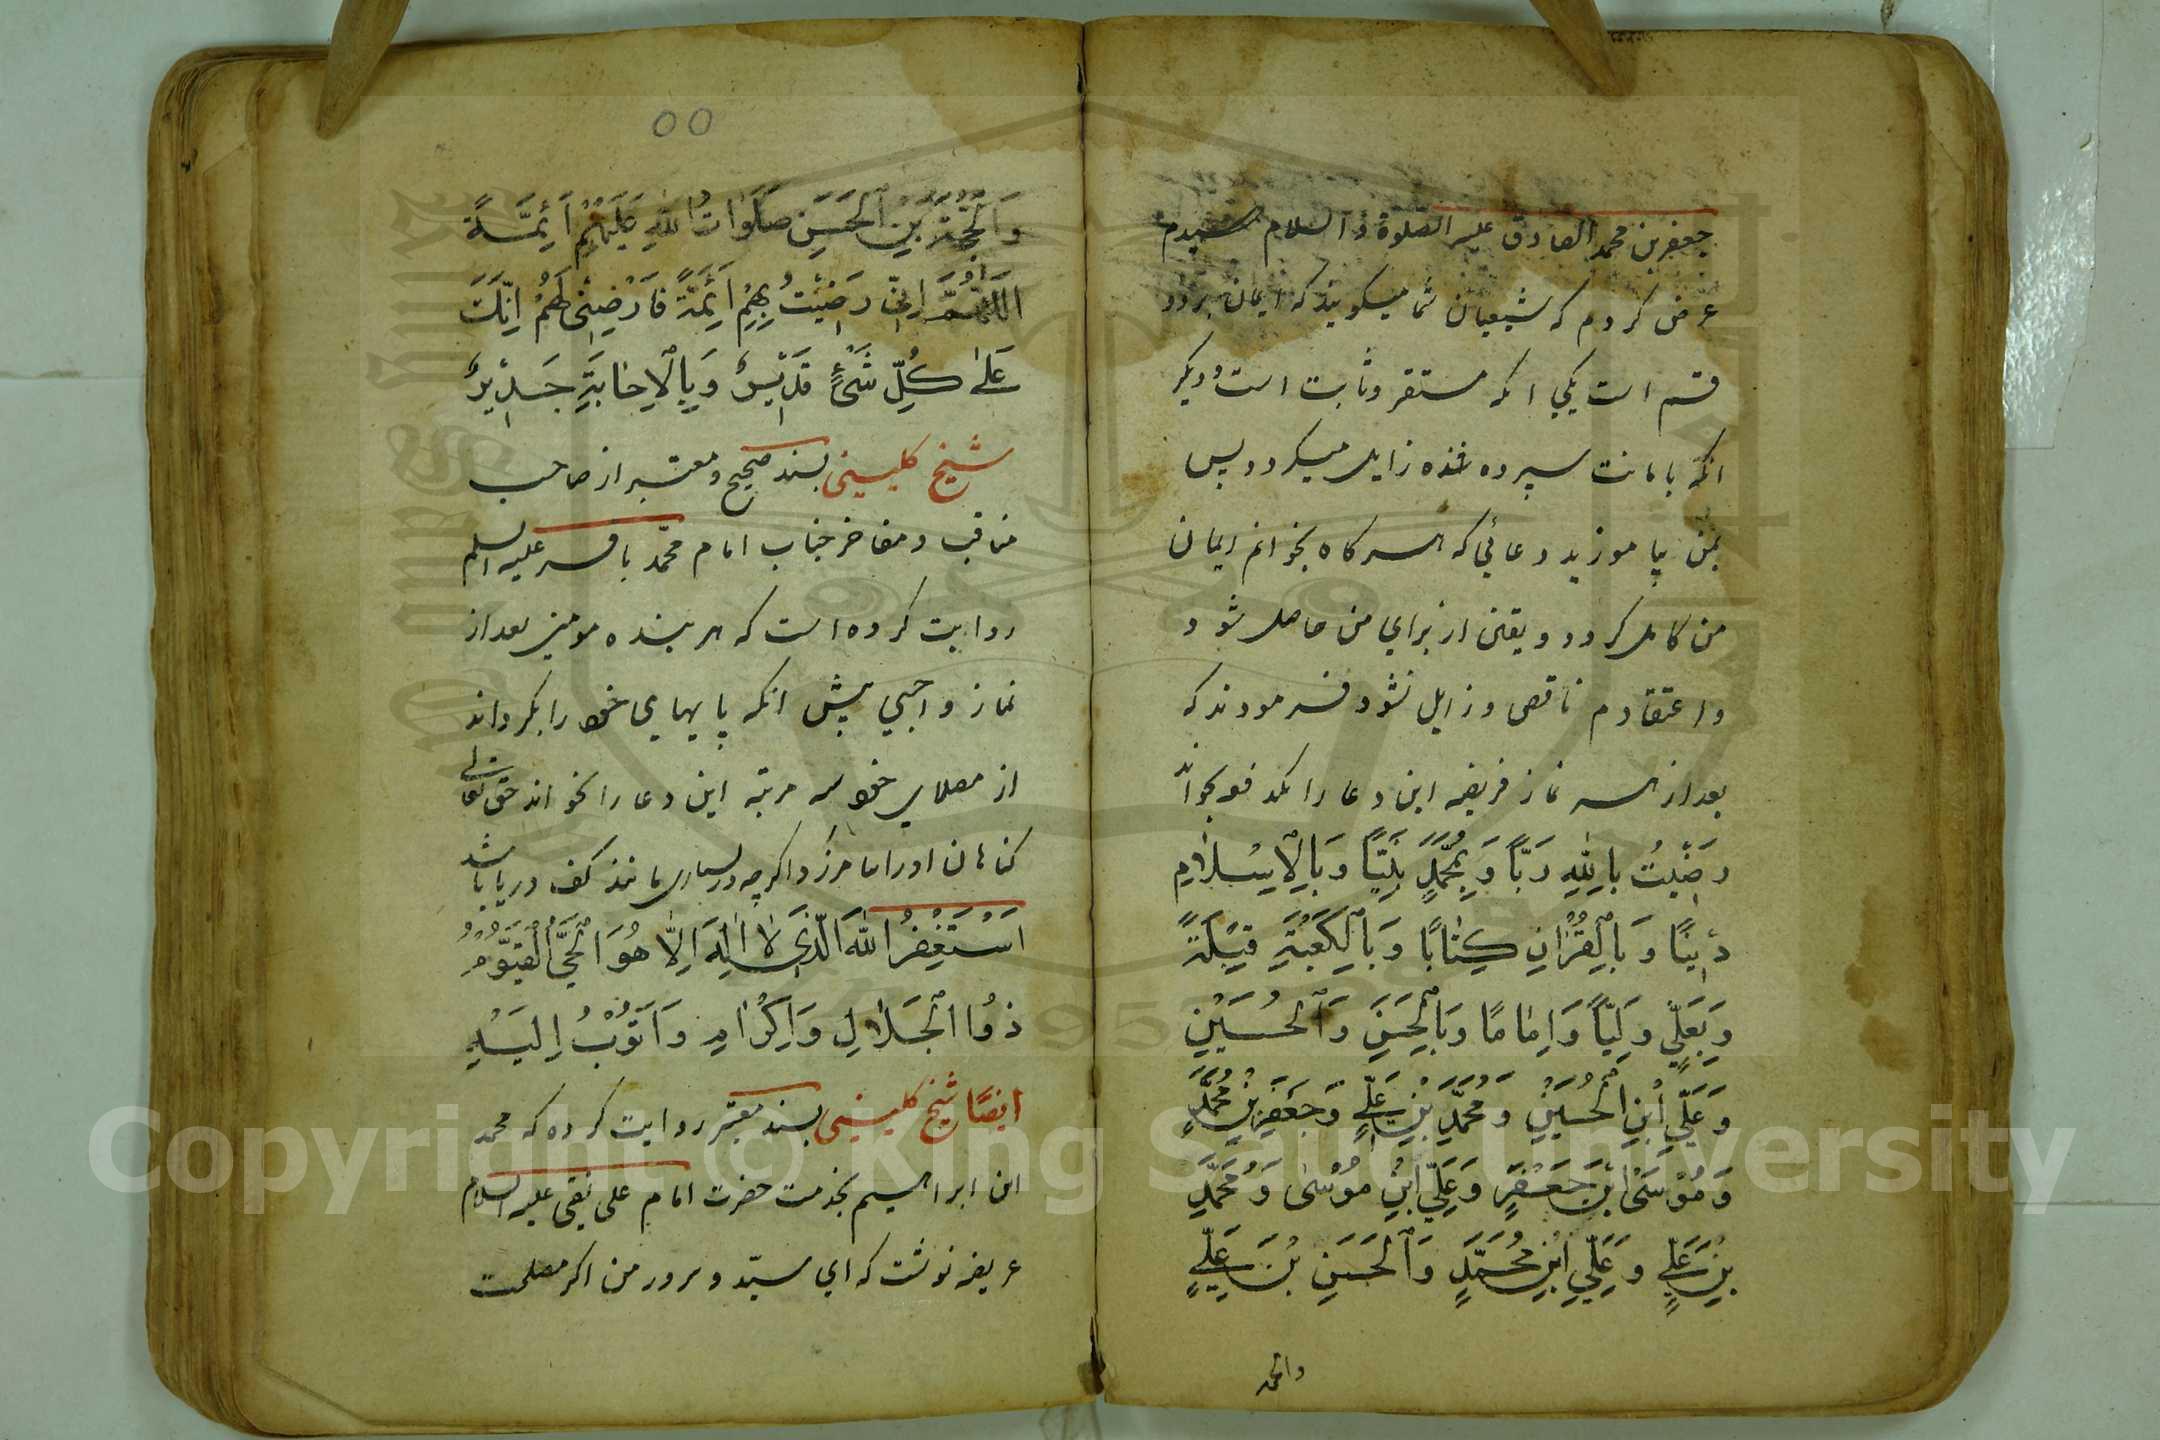 جعفر بن محمد الصادق علیه الصلوة و السلام رسیدم
عرض کردم که شیعیان شما میکویند که ایمان بر دو
قسم است یکی انکه مستقر و ثابت است و دیکر
انکه بامانت سپرده شده زایل میکردد پس
بمن بیاموزید دعائی که هرکاه بخوانم ایمان
من کامل کردد و یقین از برای من حاصل شود
و اعتقادم ناقص و زایل نشود فرمودند که
بعد از هر نماز فریضه این دعا را بخواند
رَضِیْتُ بِاللهِ رَبًّا وَ بِمُحَمَّدٍ نَبِیًّا وَ بِالْاِسْلَامِ
دِیْنًا وَ بِالْقُرْاٰنِ کِتَابًا وَ بِالْکَعْبَةِ قِبْلَةً
وَ بِعَلِیٍّ وَلِیًّا وَ اِمَامًا وَ بِالْحَسَنِ وَ الْحُسَیْنِ
وَ عَلِیِّ ابْنِ الْحُسَیْنِ وَ مُحَمَّدِ بْنِ عَلِیٍّ وَ جَعْفَرِ بْنِ مُحَمَّدٍ
وَ مُوْسَی ابْنِ جَعْفَرٍ وَ عَلِیِّ ابْنِ مُوْسٰی وَ مُحَمَّدِ
بْنِ عَلِیٍّ وَ عَلِیِّ ابْنِ مُحَمَّدٍ وَ الْحَسَنِ بْنِ عَلِیٍّ
والحجة
٥٥
وَ الْحُجَّةِ بْنِ الْحَسَنِ صَلَوَاتُ اللهِ عَلَیْهِمْ اَئِمَّةً
اَللّٰهُمَّ اِنِّیْ رَضِیْتُ بِهِمْ اَئِمَّةً فَارْضِنِیْ لَهُمْ اِنَّكَ
عَلٰی کُلِّ شَیْءٍ قَدِیْرٌ وَ بِالْاِجَابَةِ جَدِیْرٌ
شیخ کلینی بسند صحیح و معتبر از صاحب
مناقب و مفاخر جناب امام محمّد باقر علیه السلم
روایت کرده است که هر بنده مومن بعد از
نماز واجبی پیش انکه پایهای خود را بکرداند
از مصلای خود سه مرتبه این دعا را بخواند حق تعالی
کناهان او را بیامرزد اکرچه در بسیاری مانند کف دریا باشد
اَسْتَغْفِرُ اللهَ الَّذِیْ لَا اِلٰهَ اِلَّا هُوَ الْحَیُّ الْقَیُّوْمُ
ذُو الْجَلَالِ وَ اِکْرَامِ وَ اَتُوْبُ اِلَیْهِ
ایضًا شیخ کلینی بسند معتبر روایت کرده که محمد
ابن ابراهیم بخدمت حضرت امام علی نقی علیه السلام
عریضه نوشت که ای سیّد و سرور من اکر مصلحت
Copyright © King Saud University